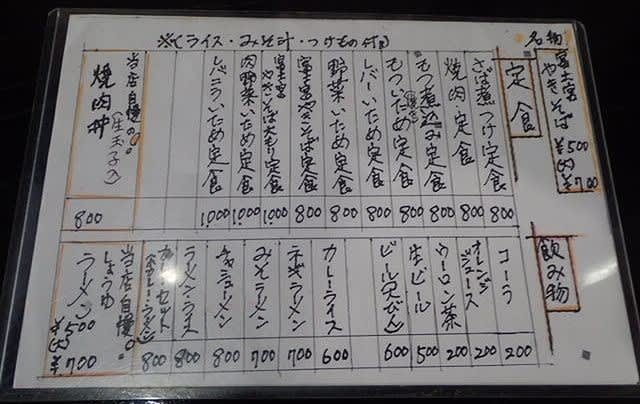 ※(ライス・みそ汁・つけもの付)
名物
富士宮
やきそば
¥500
(大)¥700
定食
さば煮つけ定食 800
焼肉定食 800
もつ煮込み定食 800
もついため定食 800
レバーいため定食 800
野菜いため定食 800
富士宮やきそば定食 800
富士宮やきそば大もり定食 1,000
肉野菜いため定食 1,000
レバニラいため定食 1,000
当店自慢の。
焼肉丼
(生玉子入)
800
飲み物
コーラ 200
オレンジジュース 200
ウーロン茶 200
生ビール 500
ビール(大びん) 600
カレーライス 600
ネギラーメン 700
みそラーメン 700
チャシューメン 800
ラーメンライス 800
セット 800
当店自慢の。
しょうゆ
ラーメン
¥500
(大)¥700